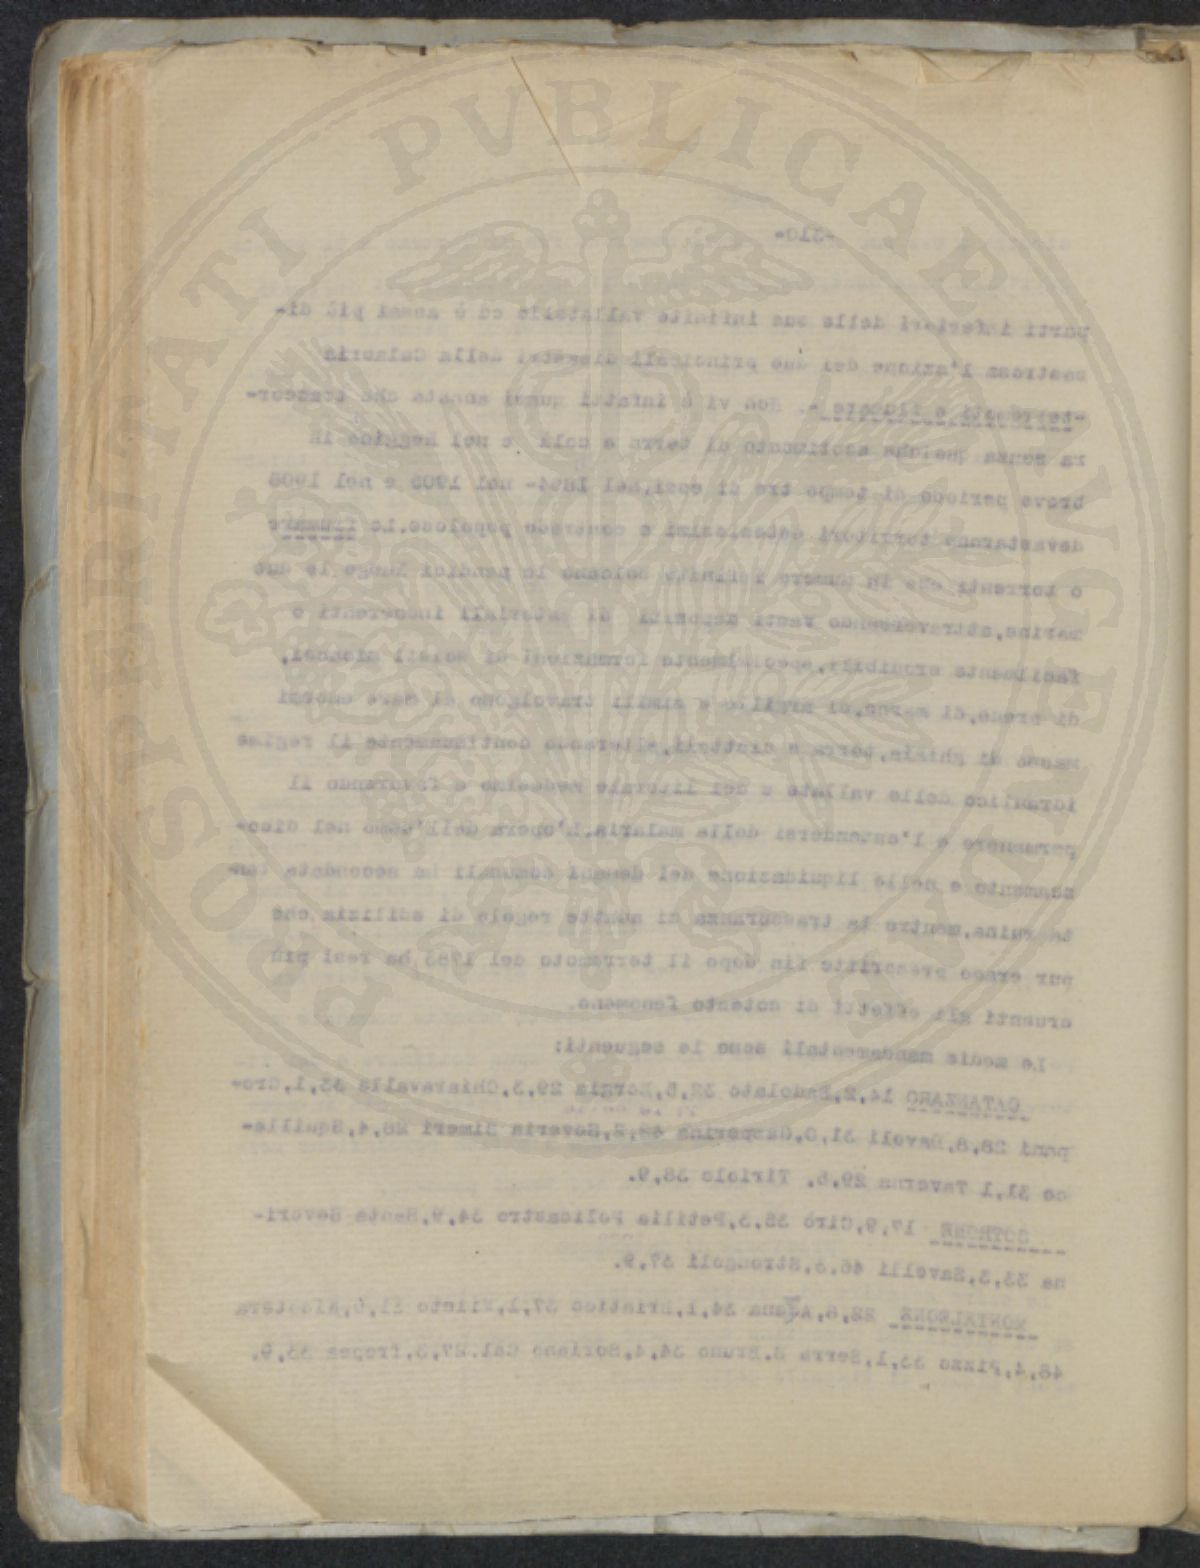 -310-
parti inferiori delle sue infinite vallatelle ed è assai più di-
sastrosa l'azione dei due principali dissesti della Calabria
-terremoti e fiumare -. Non vi è infatti quasi annata che trascor-
ra senza qualche scotimento di terra e colà e nel Reggino in
breve periodo di tempo tre di essi, nel 1894- nel 1905 e nel 1908
devastarono territori estesissimi e contrade popolose. Le fiumare
o torrenti che in numero infinito solcano le pendici lungo le due
marine, attraversando vasti depositi di materiali incoerenti e
facilmente erodibili, specialmente formazioni di scisti micacei,
di arene, di marne, di argille e simili travolgono al mare enormi
masse di ghiaia, terra e ciottoli, alterando continuamente il regime
idraulico delle vallate e del litorale medesimo e favorendo il
permanere e l'estendersi della malaria. L'opera dell'uomo nel disbo-
scamento e nella liquidazione dei demani comunali ha secondato tan-
ta ruina, mentre la trascuranza di quelle regole di edilizia che
pur erano prescritte fin dopo il terremoto del 1783 ha resi più
cruenti gli effetti di cotesto fenomeno.
Le medie mandamentali sono le seguenti:
CATANZARO 14,2, Badolato 32,5, Borgia 29,3, Chiaravalle 33,1, Cro-
pani 28,8, Davoli 31,0, Gasperina 42,2, Soveria Simeri 28,4, Squilla-
ce 31,1 Taverna 29,5, Tiriolo 38,9.
COTRONE 17,9, Cirò 35,3, Petilia Policastro 34,9, Santa Severi-
na 33,3, Savelli 46,3, Strongoli 37,9.
MONTELEONE 22,8, Arena 34,1, Briatico 37,1, Mileto 31,6, Nicotera
48,4, Pizzo 33,1, Serra S. Bruno 34,4, Soriano Cal. 27,3, Tropea 33,9.
PROSPERITATI PVBLICAE AVGENDAE